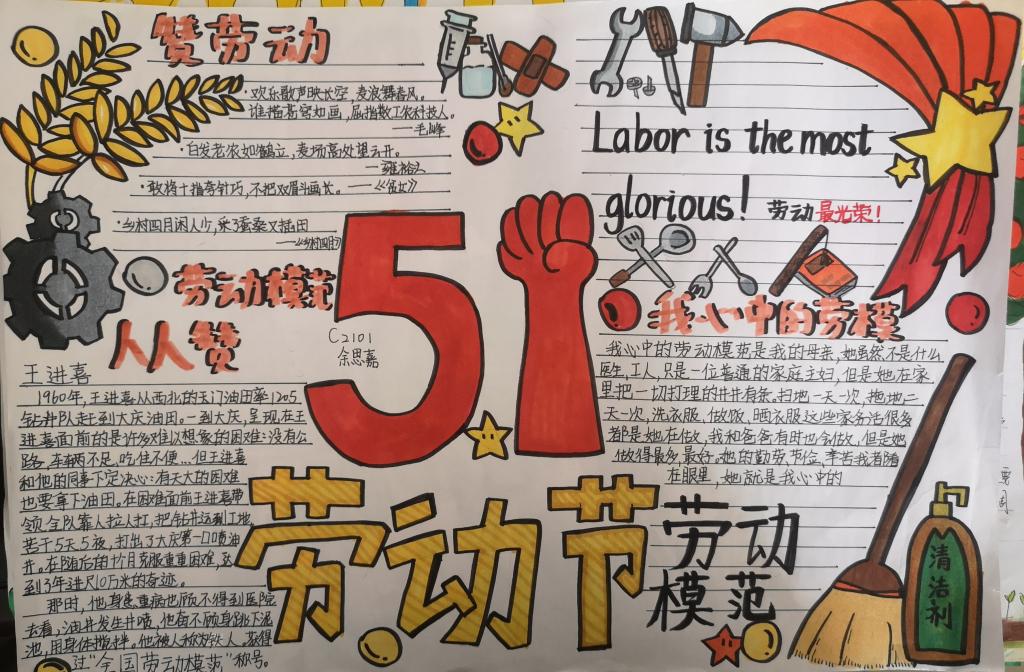 赞劳动
·欢乐歌声映长空，麦浪舞春风。
谁描苍穹如画，屈指数工农科技人。
——毛峰
·白发老农如鹤立，麦场高处望云开。
——雍裕之
·敢将十指夸针巧，不把双眉斗画长。——《贫女》
·乡村四月闲人少，采了蚕桑又插田
——《乡村四月》
Labor is the most
glorious!
劳动最光荣！
51
C2101
余思嘉
劳动模范
人人赞
王进喜
1960年，王进喜从西北的玉门油田率1205
钻井队赶到大庆油田。一到大庆，呈现在王
进喜面前的是许多难以想象的困难：没有公
路，车辆不足，吃住不便…但王进喜
和他的同事下定决心：有天大的困难
也要拿下油田。在困难面前王进喜带
领全队靠人拉人扛，把钻井运到工地
苦干5天5夜，打出了大庆第一口喷油
井。在随后的10个月克服重重困难，达
到3年进尺10万米的奇迹。
那时，他身患重病也顾不得到医院
去看，油井发生井喷，他奋不顾身跳下泥
池，用身体搅拌。他被人称铁人，获得
过“全国劳动模范”称号。
我心中的劳模
我心中的劳动模范是我的母亲，她虽然不是什么
医生，工人，只是一位普通的家庭主妇，但是她在家
里把一切打理的井井有条。扫地一天一次，拖地二
天一次，洗衣服，做饭，晒衣服这些家务活很多
都是她在做，我和爸爸有时也会做，但是她
做得最多，最好。她的勤劳节俭，辛苦我看
在眼里，她就是我心中的
劳动节
劳动
模范
清洁剂